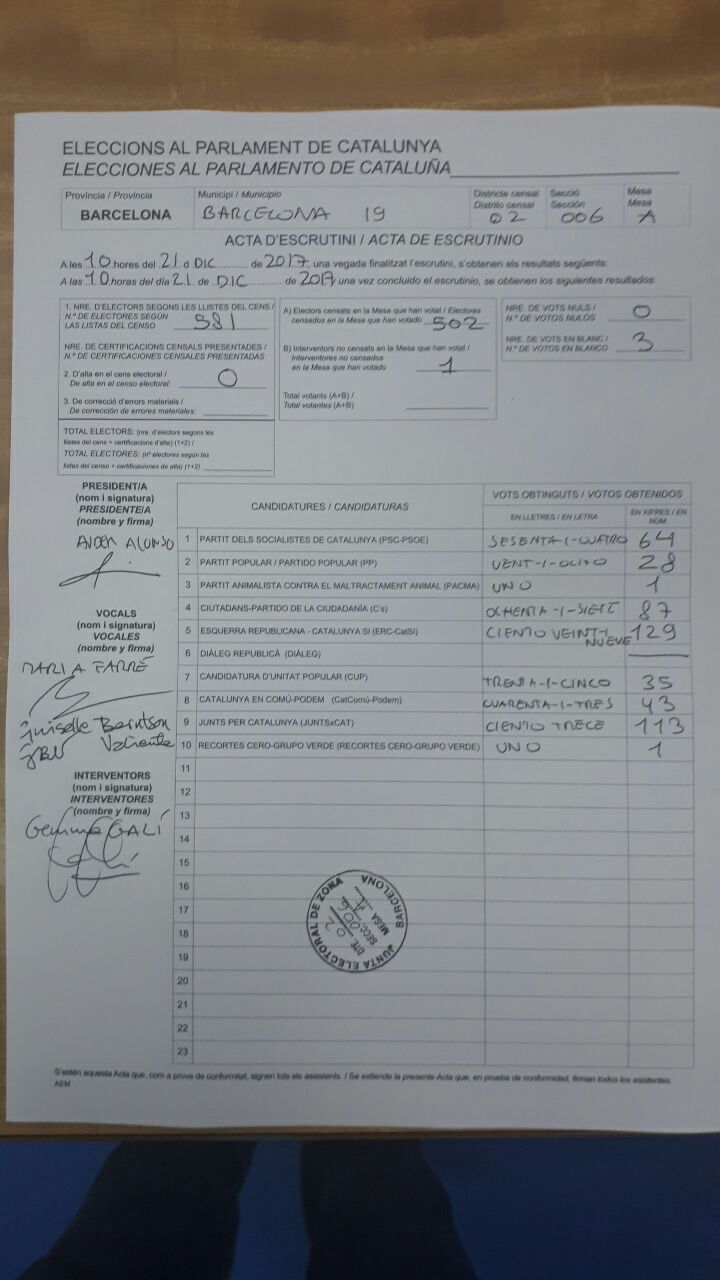 ELECCIONS AL PARLAMENT DE CATALUNYA
ELECCIONES AL PARLAMENTO DE CATALUÑA
Província / Provincia
BARCELONA
Municipi / Municipio
BARCELONA 19
Districte censal
Distrito censal
02
Secció
Sección
006
Mesa
Mesa
A
ACTA D'ESCRUTINI / ACTA DE ESCRUTINIO
A les 10 hores del 21 d DIC ............ de 2017, una vegada finalitzat l'escrutini, s'obtenen els resultats següents:
A las 10 horas del día 21 de DIC ............ de 2017, una vez concluido el escrutinio, se obtienen los siguientes resultados:
1. NRE. D'ELECTORS SEGONS LES LLISTES DEL CENS /
N.º DE ELECTORES SEGÚN
LAS LISTAS DEL CENSO 581
NRE. DE CERTIFICACIONS CENSALS PRESENTADES /
N.º DE CERTIFICACIONES CENSALES PRESENTADAS
2. D'alta en el cens electoral /
De alta en el censo electoral: 0
3. De correcció d'errors materials /
De corrección de errores materiales:
TOTAL ELECTORS: (nre. d'electors segons les
llistes del cens + certificacions d'alta) (1+2) /
TOTAL ELECTORES: (nº electores según las
listas del censo + certificaciones de alta) (1+2)
A) Electors censats en la Mesa que han votat / Electores
censados en la Mesa que han votado 502
B) Interventors no censats en la Mesa que han votat /
Interventores no censados
en la Mesa que han votado 1
Total votants (A+B) /
Total votantes (A+B)
NRE. DE VOTS NULS /
N.º DE VOTOS NULOS 0
NRE. DE VOTS EN BLANC /
N.º DE VOTOS EN BLANCO 3
PRESIDENT/A
(nom i signatura)
PRESIDENTE/A
(nombre y firma)
ANDER ALONSO
VOCALS
(nom i signatura)
VOCALES
(nombre y firma)
MARIA FARRÉ
INTERVENTORS
(nom i signatura)
INTERVENTORES
(nombre y firma)
Gemma GALÍ
CANDIDATURES / CANDIDATURAS
VOTS OBTINGUTS / VOTOS OBTENIDOS
EN LLETRES / EN LETRA
EN XIFRES / EN NÚM.
1 PARTIT DELS SOCIALISTES DE CATALUNYA (PSC-PSOE) SESENTA-I-CUATRO 64
2 PARTIT POPULAR / PARTIDO POPULAR (PP) VENT-I-OCHO 28
3 PARTIT ANIMALISTA CONTRA EL MALTRACTAMENT ANIMAL (PACMA) UNO 1
4 CIUTADANS-PARTIDO DE LA CIUDADANÍA (C's) OCHENTA-I-SIETE 87
5 ESQUERRA REPUBLICANA - CATALUNYA SÍ (ERC-CatSÍ) CIENTO VEINTI NUEVE 129
6 DIÀLEG REPUBLICÀ (DIÀLEG)
7 CANDIDATURA D'UNITAT POPULAR (CUP) TRENTA-I-CINCO 35
8 CATALUNYA EN COMÚ-PODEM (CatComú-Podem) CUARENTA-I-TRES 43
9 JUNTS PER CATALUNYA (JUNTSxCAT) CIENTO TRECE 113
10 RECORTES CERO-GRUPO VERDE (RECORTES CERO-GRUPO VERDE) UNO 1
11
12
13
14
15
16
17
18
19
20
21
22
23
JUNTA ELECTORAL DE ZONA
BARCELONA
DTE. 02
SECC. 006
MESA A
S'estén aquesta Acta que, com a prova de conformitat, signen tots els assistents. / Se extiende la presente Acta que, en prueba de conformidad, firman todos los asistentes.
AEM